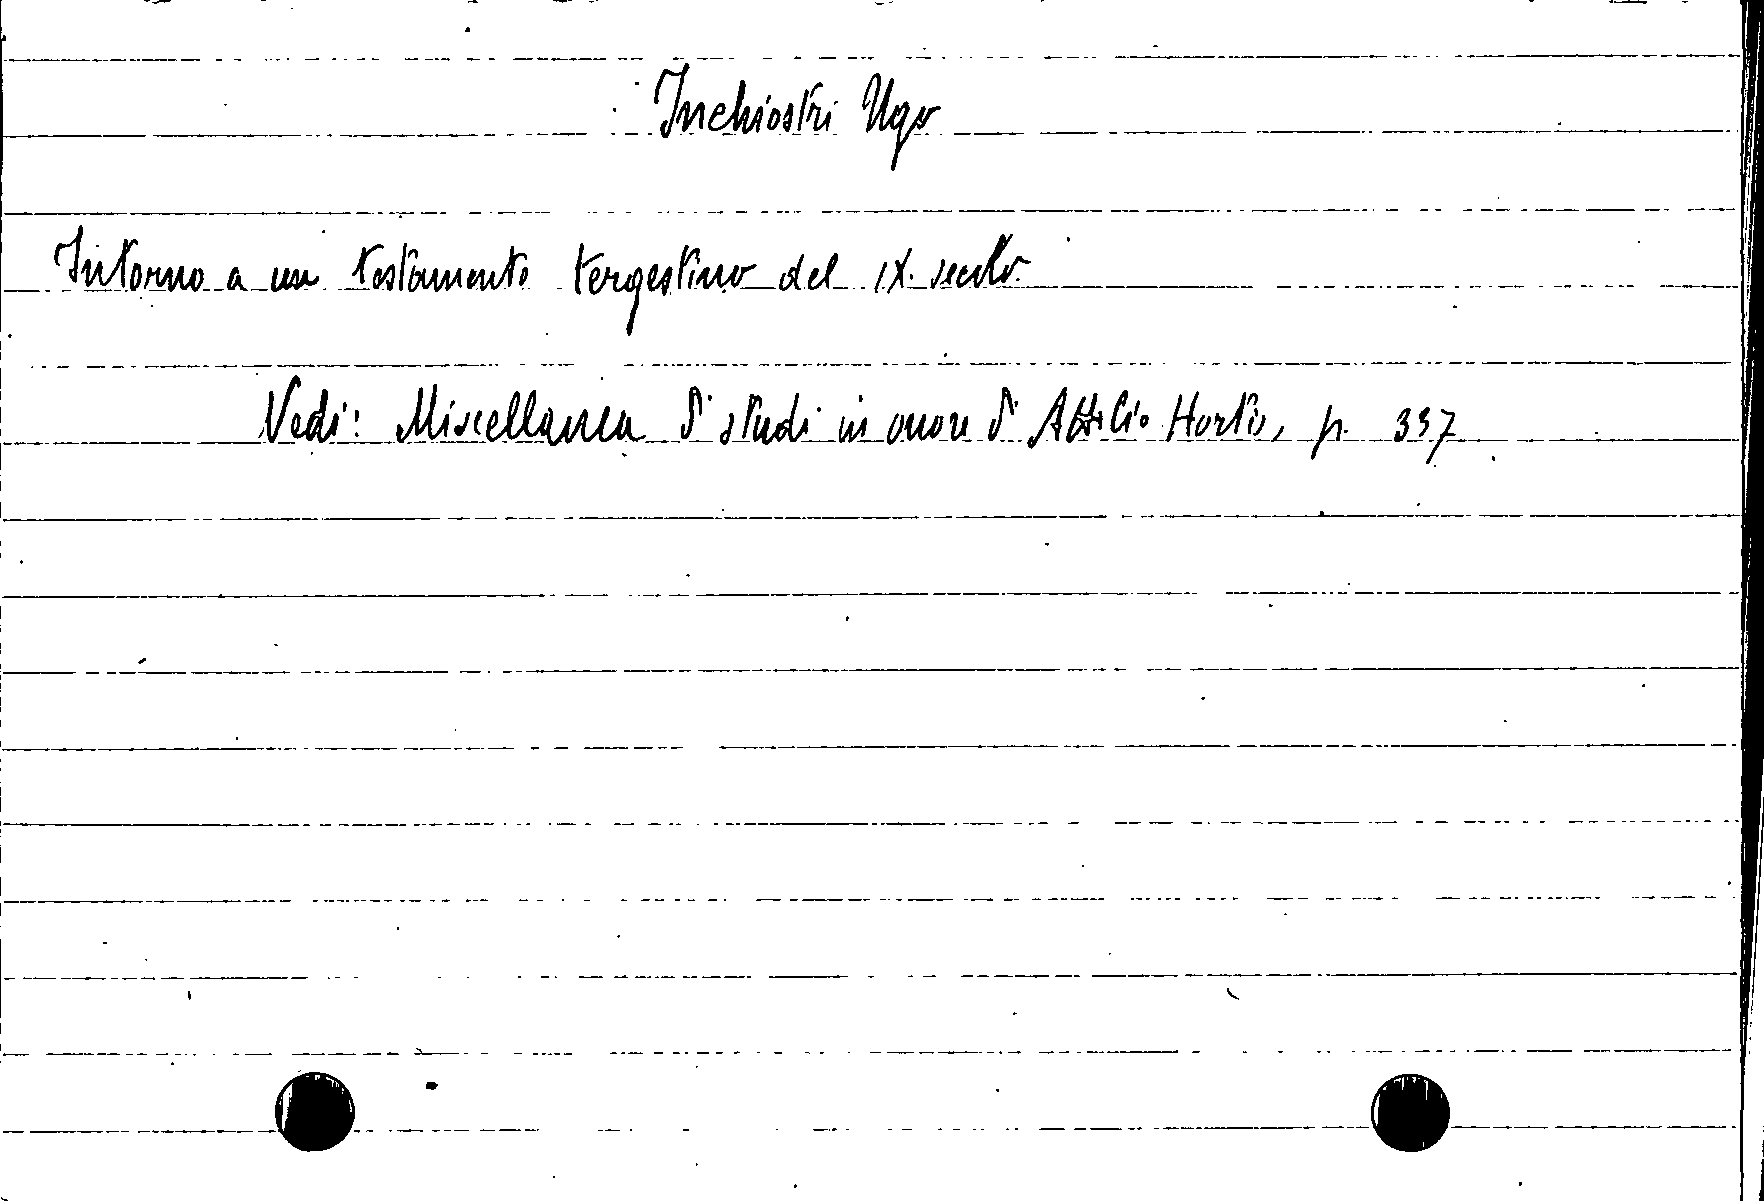 Inchiostri Ugo
Intorno a un testamento tergestino del IX. secolo.
Vedi: Miscellanea di studi in onore di Attilio Hortis, p. 337